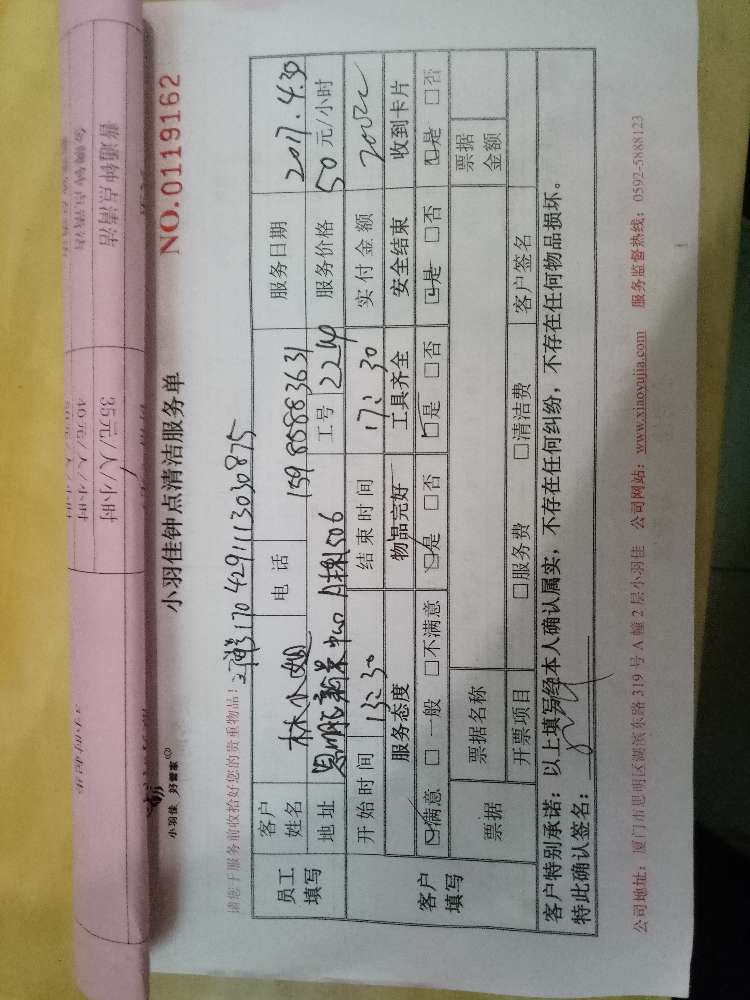 普通钟点清洁 35元/人/小时
40元/人/小时
NO.0119162
小羽佳 好管家
小羽佳钟点清洁服务单
请您于服务前收拾好您的贵重物品!
1704291113030875
员工填写 客户姓名 林小姐 电话 15985883631 服务日期 2017.4.30
地址 思明区 A栋1506 工号 2214 服务价格 50元/小时
客户填写 开始时间 13:30 结束时间 17:30 实付金额 200元
服务态度 物品完好 工具齐全 安全结束 收到卡片
☑满意 □一般 □不满意 ☑是 □否 ☑是 □否 ☑是 □否 ☑是 □否
票据 票据名称 票据金额
开票项目 □服务费 □清洁费 客户签名
客户特别承诺：以上填写经本人确认属实，不存在任何纠纷，不存在任何物品损坏。
特此确认签名：
公司地址：厦门市思明区湖滨东路319号A幢2层小羽佳 公司网站：www.xiaoyujia.com 服务监督热线：0592-5888123